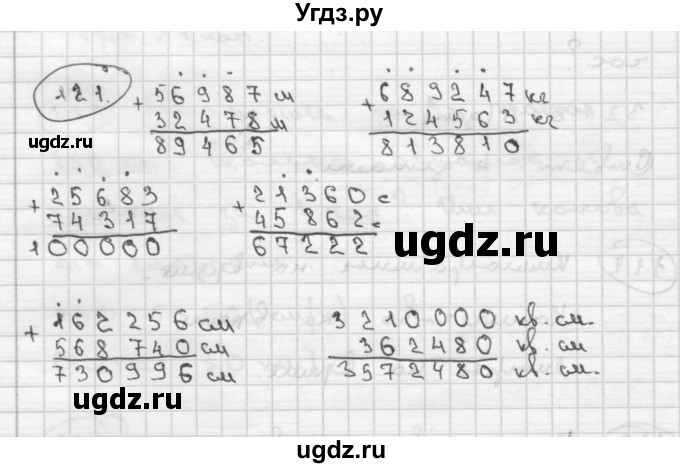 Угдз.ру
121.
+ 56987 м
32478 м
89465
+ 689247 кг
124563 кг
813810
+ 25683
74317
100000
+ 21360 с
45862 с
67222
ugdz.ru
ugdz.ru
+ 162256 см
568740 см
730996 см
3210000 кв. см.
362480 кв. см
3572480 кв. см.
ugdz.ru
ugdz.ru